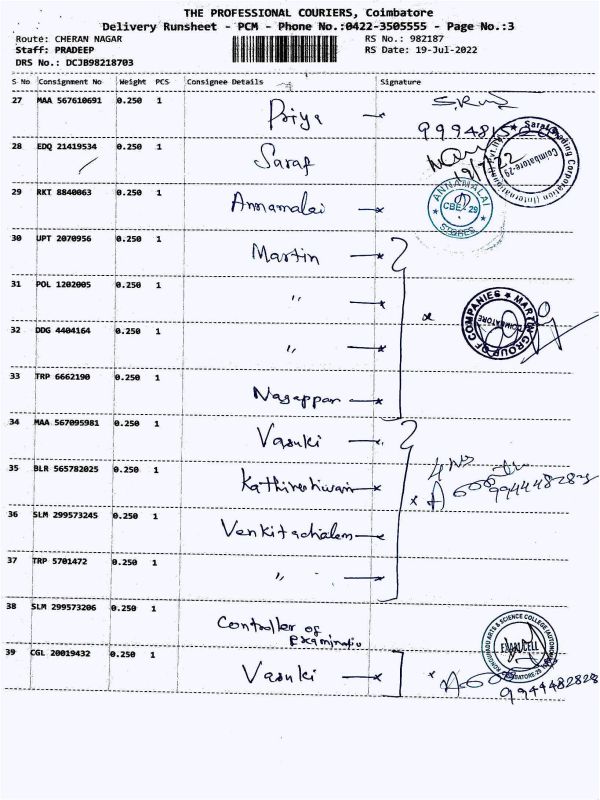 THE PROFESSIONAL COURIERS, Coimbatore
Delivery Runsheet - PCM - Phone No.:0422-3505555 - Page No.:3
Route: CHERAN NAGAR RS No.: 982187
Staff: PRADEEP RS Date: 19-Jul-2022
DRS No.: DCJB98218703
S No Consignment No Weight PCS Consignee Details Signature
27 MAA 567610691 0.250 1 Priya
28 EDQ 21419534 0.250 1 Saraf 19/7/22
Saraf Trading Corporation (International) Pvt. Ltd. Coimbatore-29
29 RKT 8840063 0.250 1 Annamalai
ANNAMALAI STORES CBE - 29
30 UPT 2070956 0.250 1 Martin
31 POL 1202005 0.250 1 "
MARTIN GROUP OF COMPANIES COIMBATORE
32 DDG 4404164 0.250 1 "
33 TRP 6662190 0.250 1 Nagappan
34 MAA 567095981 0.250 1 Vasuki
35 BLR 565782025 0.250 1 Kathireshwari 4 Nos
36 SLM 299573245 0.250 1 Venkitachalam
37 TRP 5701472 0.250 1 "
38 SLM 299573206 0.250 1 Controller of
Examinatio
ARTS & SCIENCE COLLEGE EXAM CELL COIMBATORE-29
39 CGL 20019432 0.250 1 Vasuki
9944482828